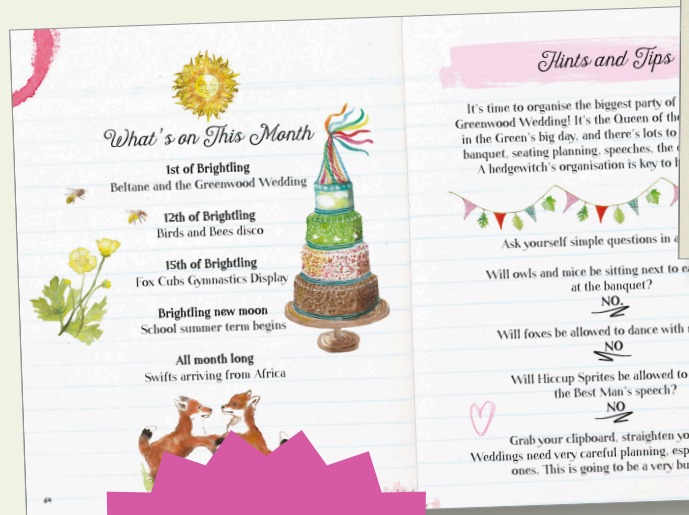 What's on This Month
1st of Brightling
Beltane and the Greenwood Wedding
12th of Brightling
Birds and Bees disco
15th of Brightling
Fox Cubs Gymnastics Display
Brightling new moon
School summer term begins
All month long
Swifts arriving from Africa
Hints and Tips
It's time to organise the biggest party of
Greenwood Wedding! It's the Queen of the
in the Green's big day, and there's lots to
banquet, seating planning, speeches, the
A hedgewitch's organisation is key to
Ask yourself simple questions in a
Will owls and mice be sitting next to
at the banquet?
NO.
Will foxes be allowed to dance with
NO
Will Hiccup Sprites be allowed to
the Best Man's speech?
NO
Grab your clipboard, straighten
Weddings need very careful planning,
ones. This is going to be a very